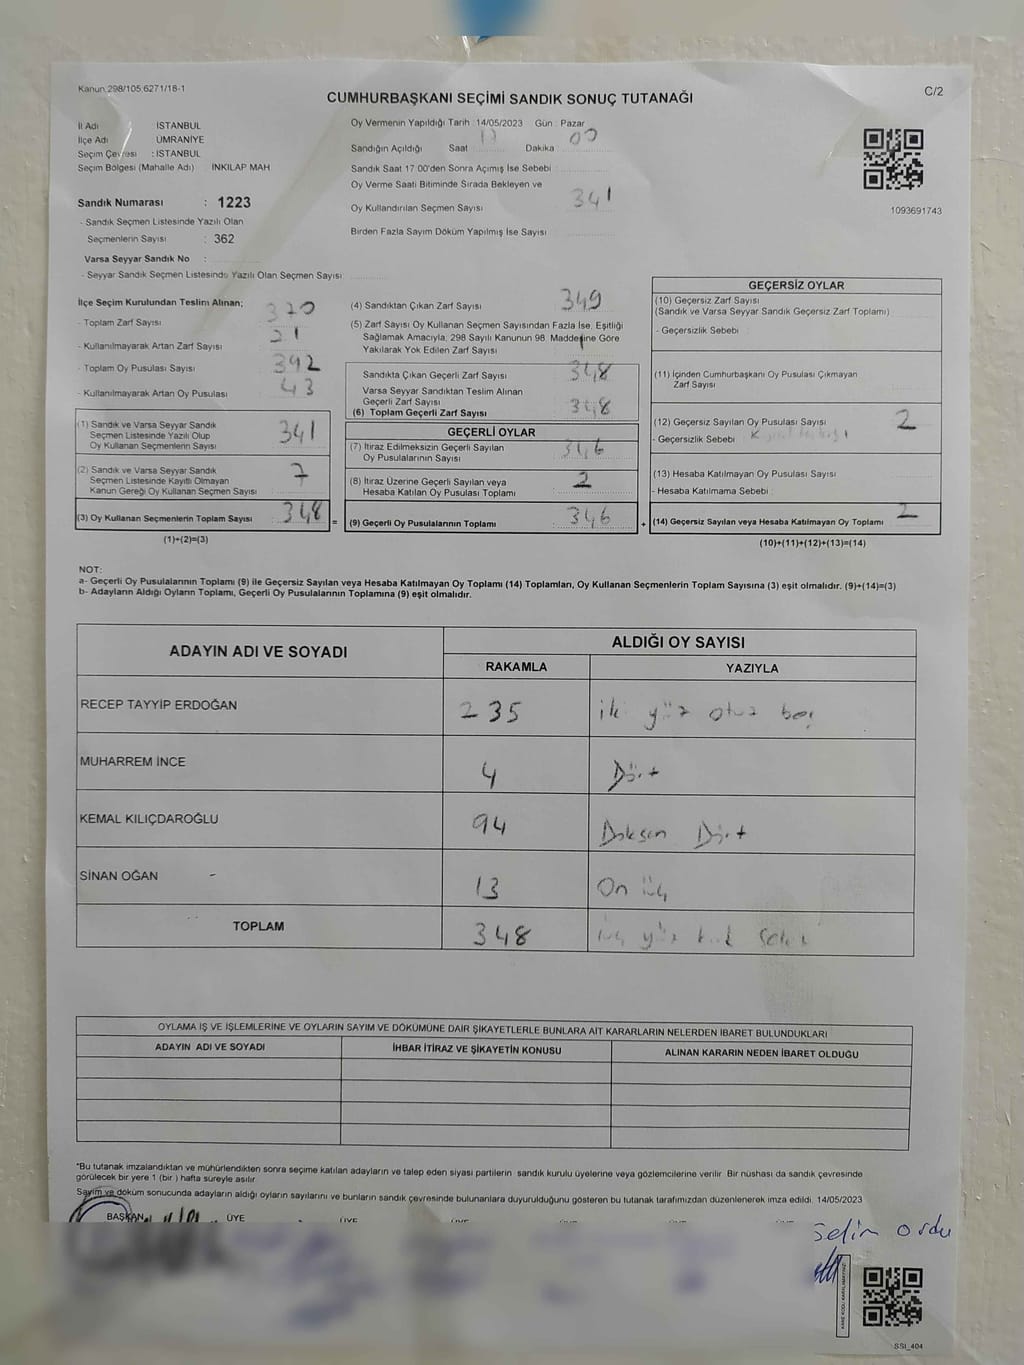 Kanun 298/105,6271/18-1
C/2
CUMHURBAŞKANI SEÇİMİ SANDIK SONUÇ TUTANAĞI
İl Adı İSTANBUL
İlçe Adı ÜMRANİYE
Seçim Çevresi : İSTANBUL
Seçim Bölgesi (Mahalle Adı) İNKILAP MAH
Sandık Numarası : 1223
- Sandık Seçmen Listesinde Yazılı Olan
Seçmenlerin Sayısı : 362
Varsa Seyyar Sandık No :
- Seyyar Sandık Seçmen Listesinde Yazılı Olan Seçmen Sayısı
Oy Vermenin Yapıldığı Tarih : 14/05/2023 Gün : Pazar
Sandığın Açıldığı Saat 17 Dakika 00
Sandık Saat 17:00'den Sonra Açımış İse Sebebi
Oy Verme Saati Bitiminde Sırada Bekleyen ve
Oy Kullandırılan Seçmen Sayısı 341
Birden Fazla Sayım Döküm Yapılmış İse Sayısı
1093691743
İlçe Seçim Kurulundan Teslim Alınan;
- Toplam Zarf Sayısı 370
- Kullanılmayarak Artan Zarf Sayısı 21
- Toplam Oy Pusulası Sayısı 392
- Kullanılmayarak Artan Oy Pusulası 43
(1) Sandık ve Varsa Seyyar Sandık
Seçmen Listesinde Yazılı Olup
Oy Kullanan Seçmenlerin Sayısı 341
(2) Sandık ve Varsa Seyyar Sandık
Seçmen Listesinde Kayıtlı Olmayan
Kanun Gereği Oy Kullanan Seçmen Sayısı 7
(3) Oy Kullanan Seçmenlerin Toplam Sayısı 348 =
(1)+(2)=(3)
(4) Sandıktan Çıkan Zarf Sayısı 349
(5) Zarf Sayısı Oy Kullanan Seçmen Sayısından Fazla İse, Eşitliği
Sağlamak Amacıyla, 298 Sayılı Kanunun 98. Maddesine Göre
Yakılarak Yok Edilen Zarf Sayısı 1
Sandıkta Çıkan Geçerli Zarf Sayısı 348
Varsa Seyyar Sandıktan Teslim Alınan
Geçerli Zarf Sayısı
(6) Toplam Geçerli Zarf Sayısı 348
GEÇERLİ OYLAR
(7) İtiraz Edilmeksizin Geçerli Sayılan
Oy Pusulalarının Sayısı 346
(8) İtiraz Üzerine Geçerli Sayılan veya
Hesaba Katılan Oy Pusulası Toplamı 2
(9) Geçerli Oy Pusulalarının Toplamı 346 +
GEÇERSİZ OYLAR
(10) Geçersiz Zarf Sayısı
(Sandık ve Varsa Seyyar Sandık Geçersiz Zarf Toplamı)
- Geçersizlik Sebebi
(11) İçinden Cumhurbaşkanı Oy Pusulası Çıkmayan
Zarf Sayısı
(12) Geçersiz Sayılan Oy Pusulası Sayısı 2
- Geçersizlik Sebebi
(13) Hesaba Katılmayan Oy Pusulası Sayısı
- Hesaba Katılmama Sebebi
(14) Geçersiz Sayılan veya Hesaba Katılmayan Oy Toplamı 2
(10)+(11)+(12)+(13)=(14)
NOT:
a- Geçerli Oy Pusulalarının Toplamı (9) ile Geçersiz Sayılan veya Hesaba Katılmayan Oy Toplamı (14) Toplamları, Oy Kullanan Seçmenlerin Toplam Sayısına (3) eşit olmalıdır. (9)+(14)=(3)
b- Adayların Aldığı Oyların Toplamı, Geçerli Oy Pusulalarının Toplamına (9) eşit olmalıdır.
ADAYIN ADI VE SOYADI
ALDIĞI OY SAYISI
RAKAMLA YAZIYLA
RECEP TAYYİP ERDOĞAN 235 iki yüz otuz beş
MUHARREM İNCE 4 Dört
KEMAL KILIÇDAROĞLU 94 Doksan Dört
SİNAN OĞAN 13 On üç
TOPLAM 348 üç yüz kırk sekiz
OYLAMA İŞ VE İŞLEMLERİNE VE OYLARIN SAYIM VE DÖKÜMÜNE DAİR ŞİKAYETLERLE BUNLARA AİT KARARLARIN NELERDEN İBARET BULUNDUKLARI
ADAYIN ADI VE SOYADI İHBAR İTİRAZ VE ŞİKAYETİN KONUSU ALINAN KARARIN NEDEN İBARET OLDUĞU
*Bu tutanak imzalandıktan ve mühürlendikten sonra seçime katılan adayların ve talep eden siyasi partilerin sandık kurulu üyelerine veya gözlemcilerine verilir. Bir nüshası da sandık çevresinde
görülecek bir yere 1 (bir ) hafta süreyle asılır
Sayım ve döküm sonucunda adayların aldığı oyların sayılarını ve bunların sandık çevresinde bulunanlara duyurulduğunu gösteren bu tutanak tarafımızdan düzenlenerek imza edildi. 14/05/2023
BAŞKAN ÜYE ÜYE
Selim Ordu
SSİ_404